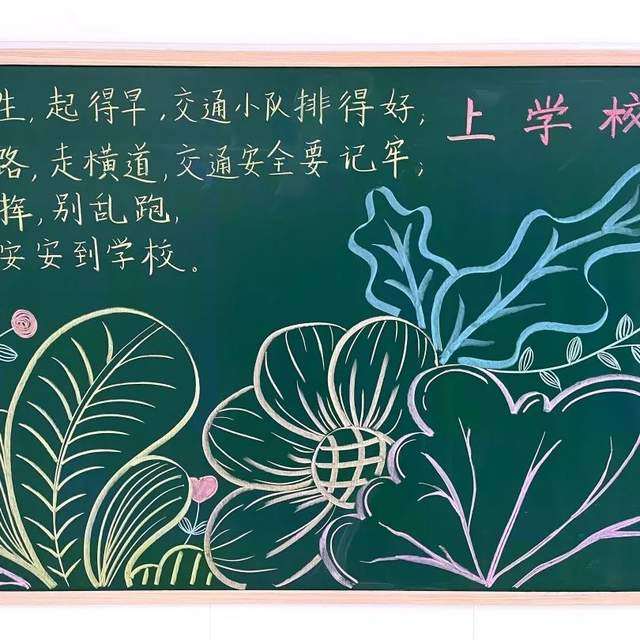 生,起得早,交通小队排得好;
路,走横道,交通安全要记牢;
挥,别乱跑,
安安到学校。
上学校